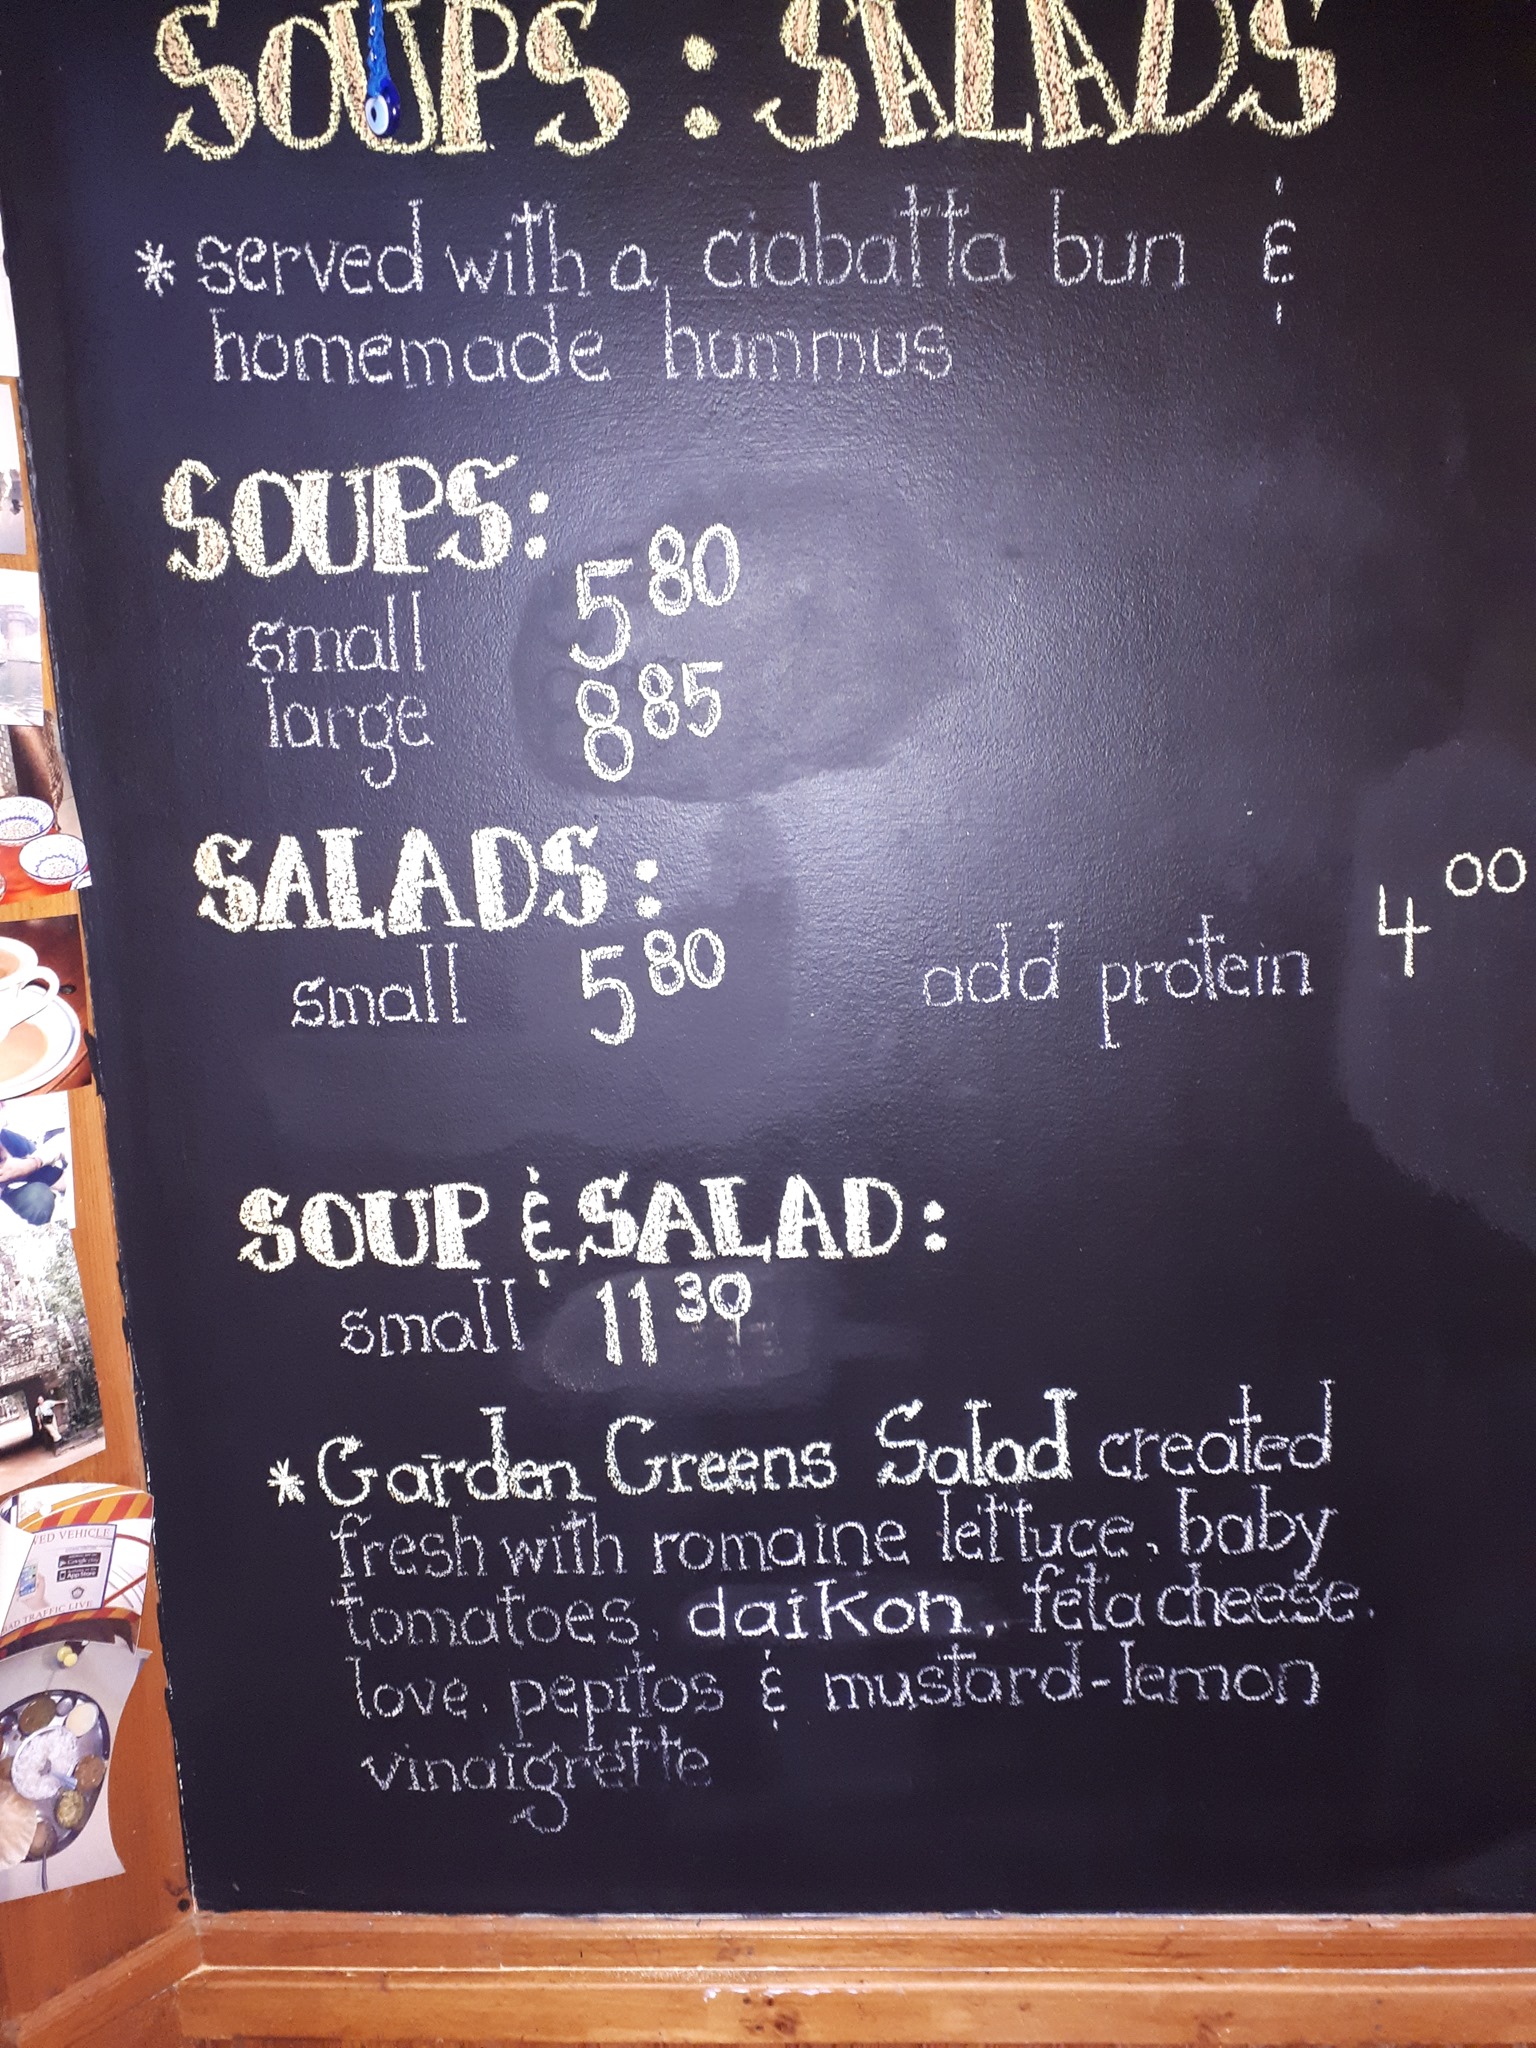 SOUPS : SALADS
* served with a ciabatta bun &
homemade hummus
SOUPS:
small 5 80
large 8 85
SALADS:
small 5 80 add protein 4 00
SOUP & SALAD:
small 11 30
* Garden Greens Salad created
fresh with romaine lettuce, baby
tomatoes, daikon, feta cheese,
love, pepitos & mustard-lemon
vinaigrette
VED VEHICLE
Google play
App Store
AD TRAFFIC LIVE